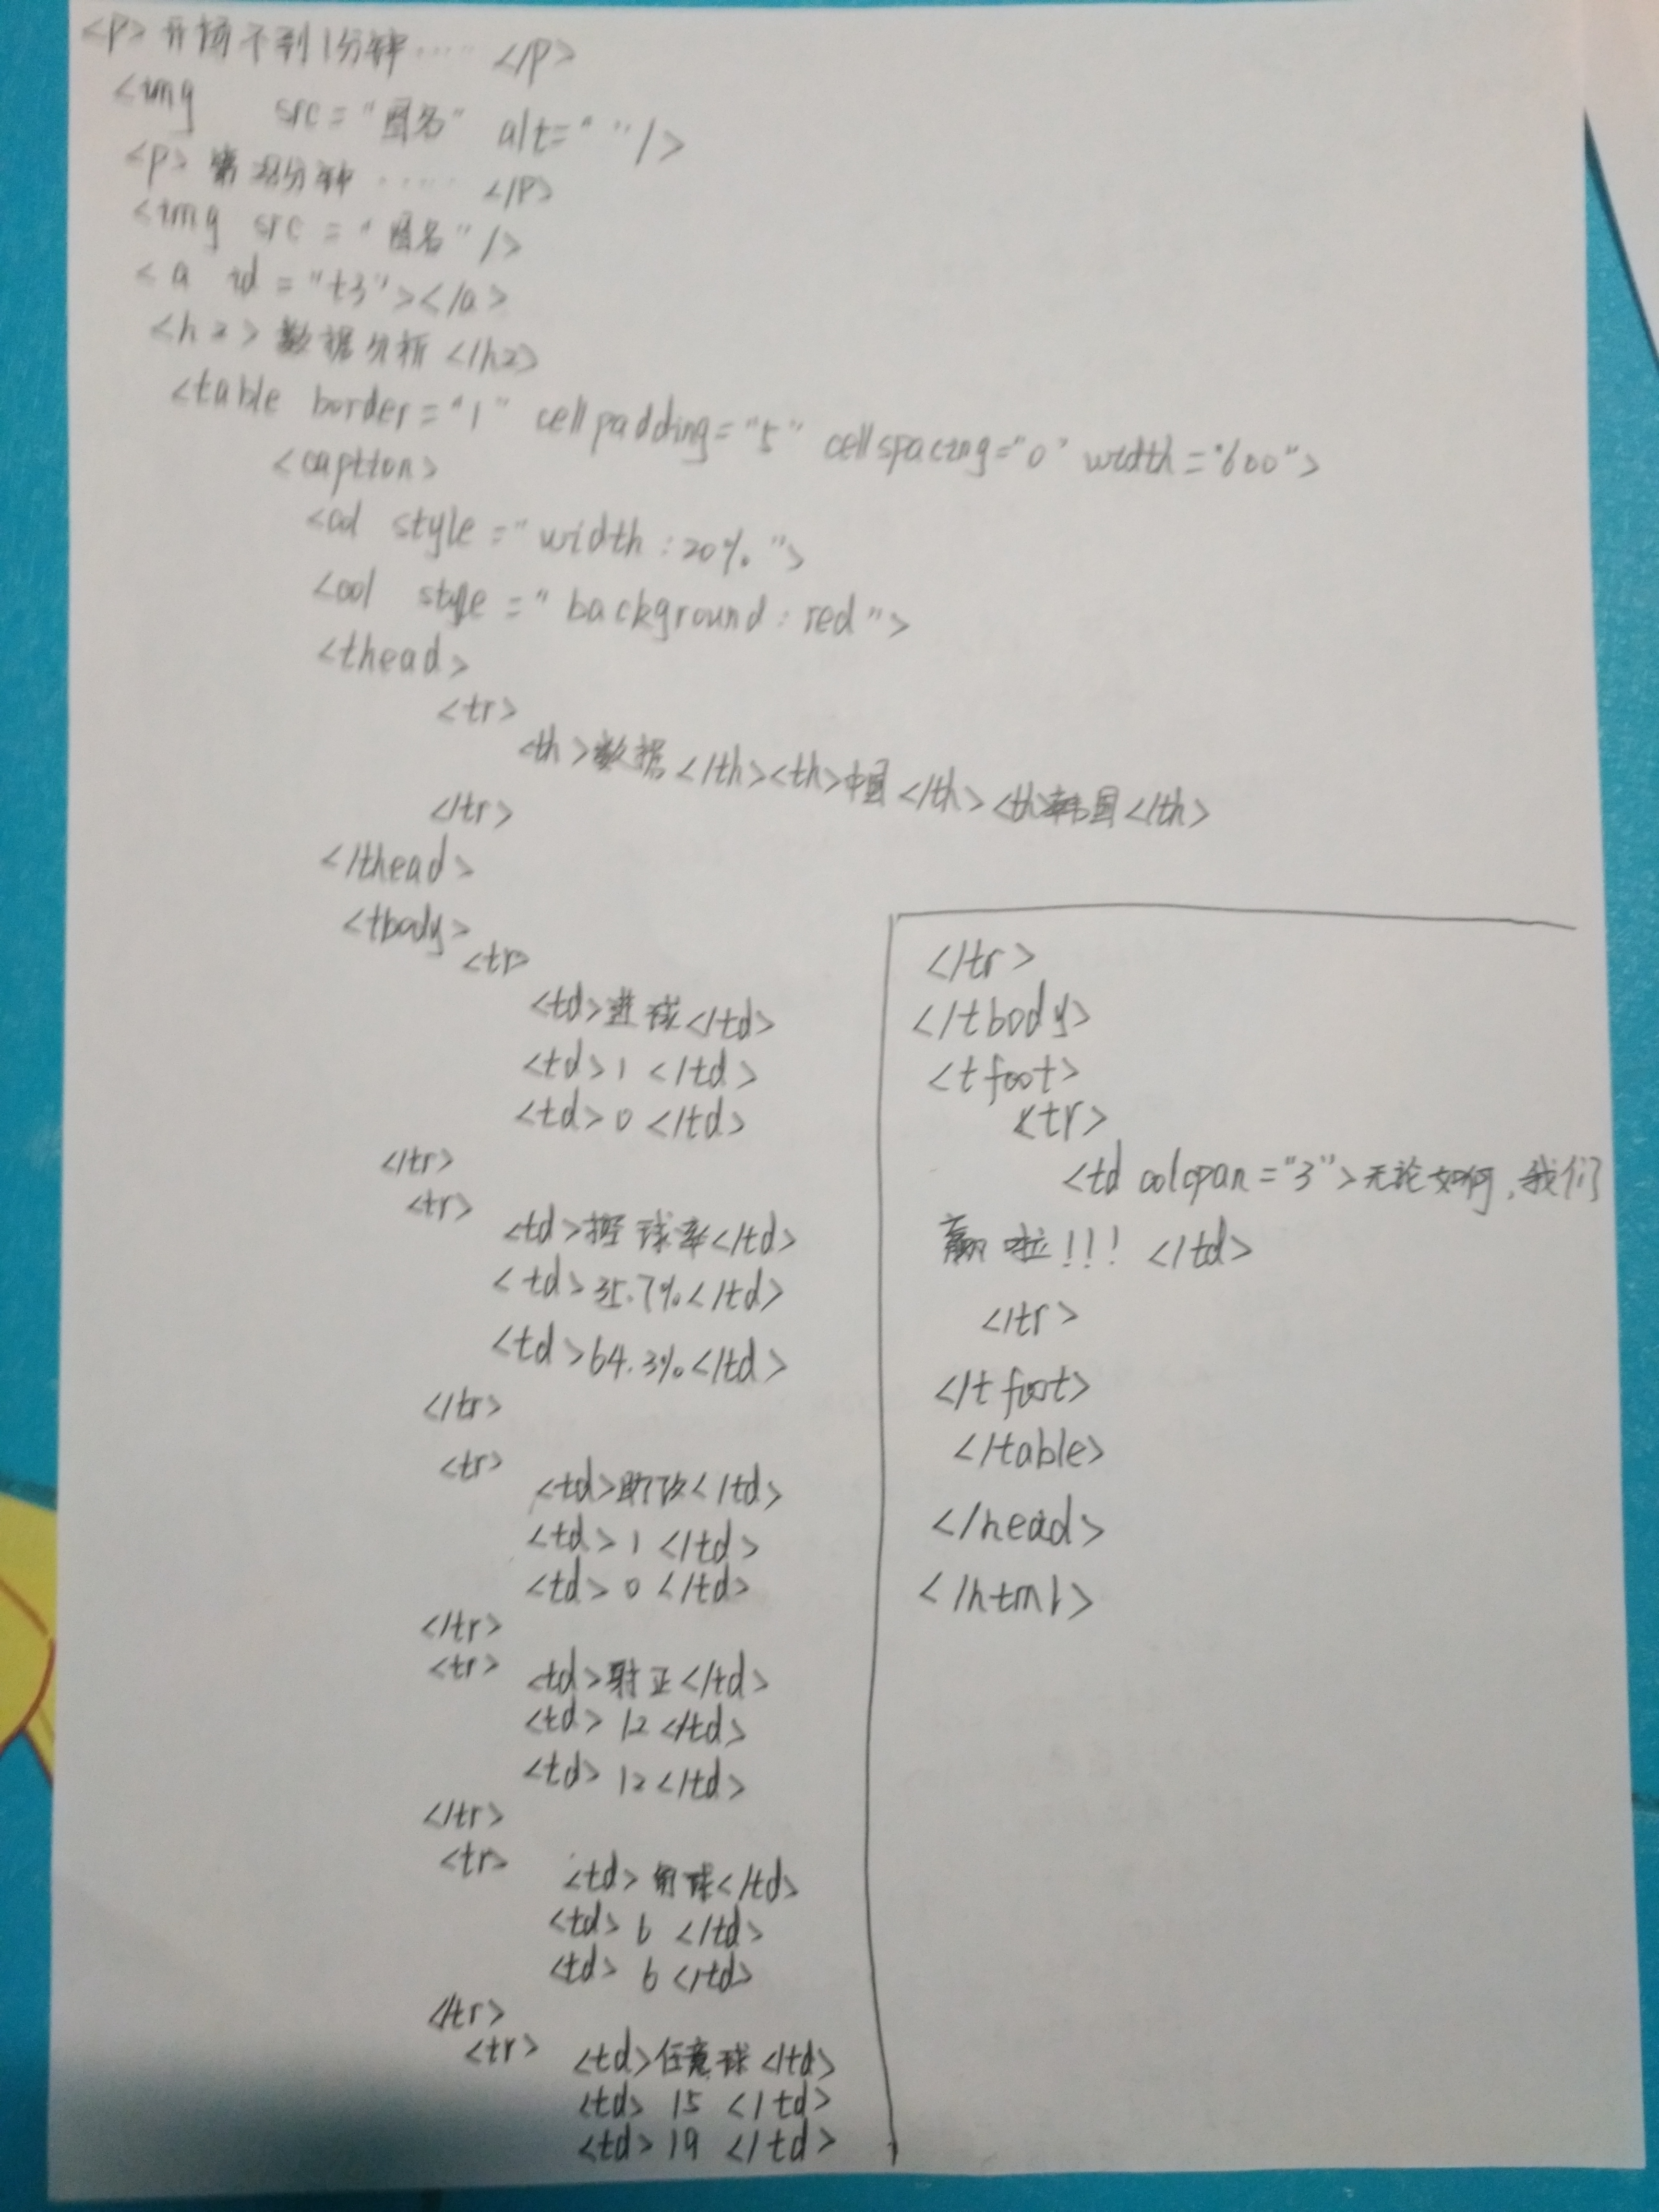 <p>开场不到1分钟…… </p>
<img src="图名" alt=" "/>
<p>第28分钟…… </p>
<img src="图名"/>
<a id="t3"></a>
<h2>数据分析</h2>
<table border="1" cellpadding="5" cellspacing="0" width="600">
<caption>
<col style="width:20%">
<col style="background:red">
<thead>
<tr>
<th>数据</th><th>中国</th><th>韩国</th>
</tr>
</thead>
<tbody>
<tr>
<td>进球</td>
<td>1</td>
<td>0</td>
</tr>
<tr>
<td>控球率</td>
<td>35.7%</td>
<td>64.3%</td>
</tr>
<tr>
<td>助攻</td>
<td>1</td>
<td>0</td>
</tr>
<tr>
<td>射正</td>
<td>12</td>
<td>12</td>
</tr>
<tr>
<td>角球</td>
<td>6</td>
<td>6</td>
</tr>
<tr>
<td>任意球</td>
<td>15</td>
<td>19</td>
</tr>
</tbody>
<tfoot>
<tr>
<td colcpan="3">无论如何,我们
赢啦!!!</td>
</tr>
</tfoot>
</table>
</head>
</html>